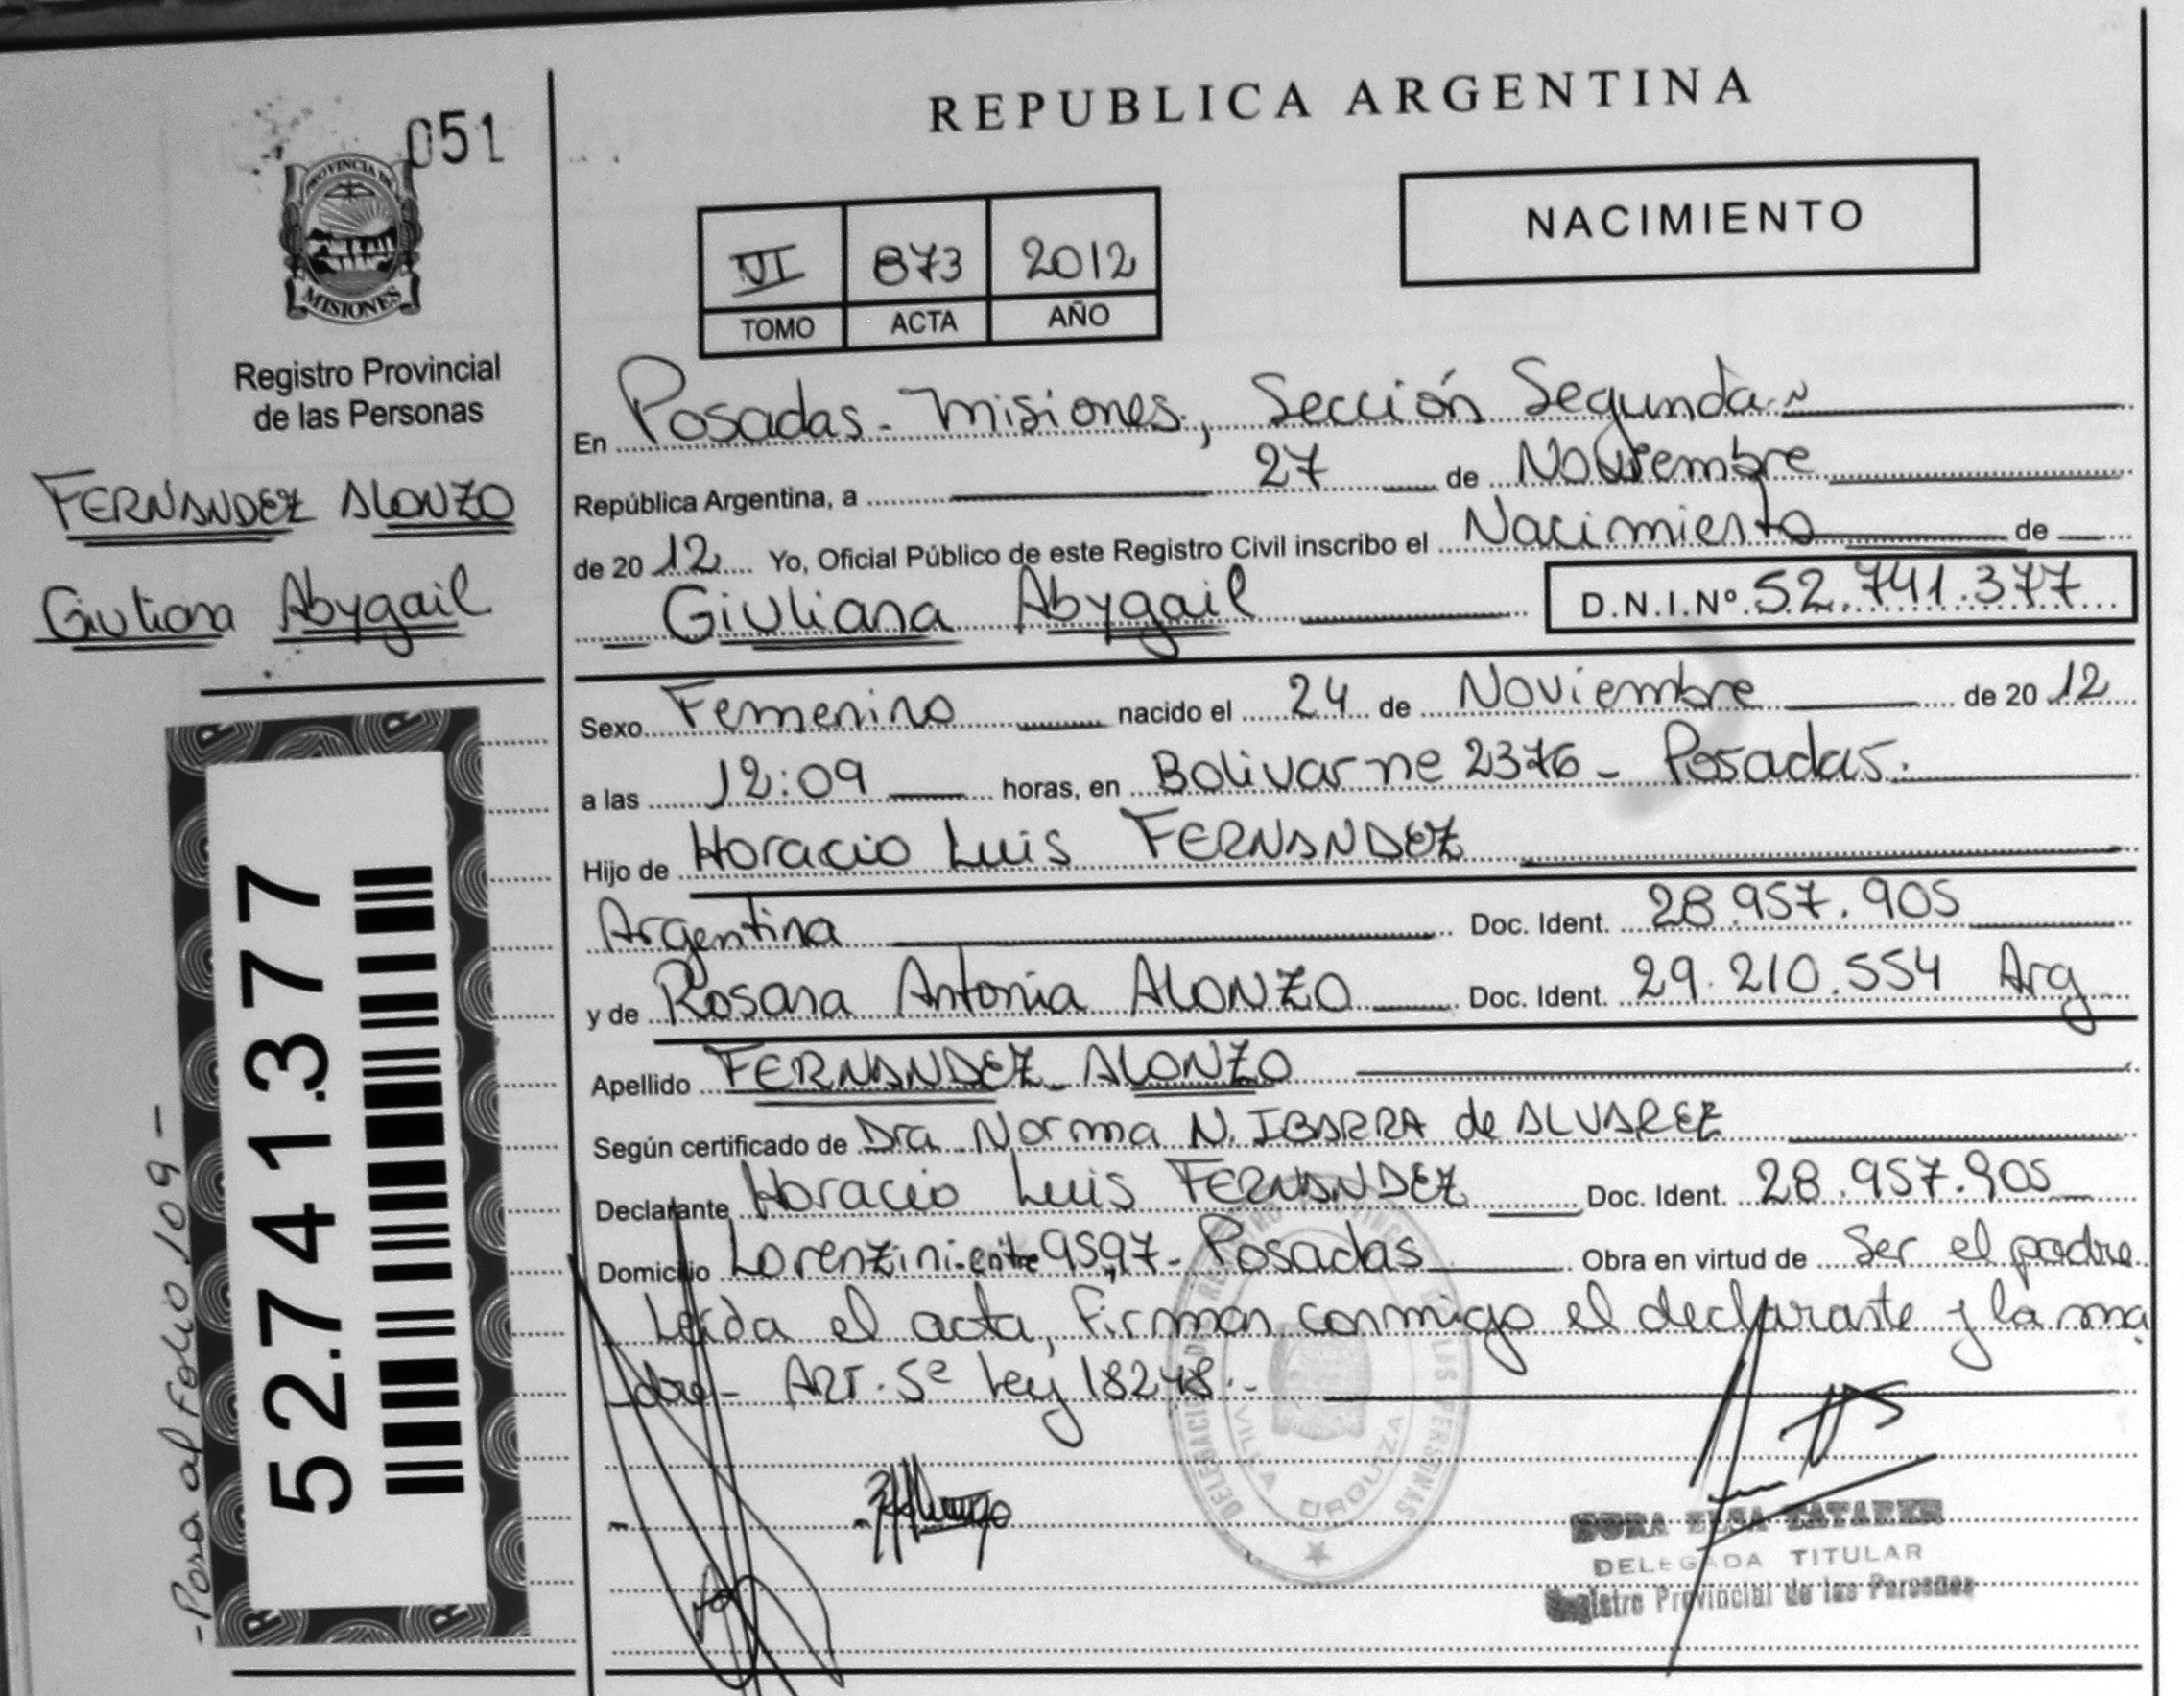 051
PROVINCIA DE
MISIONES
Registro Provincial
de las Personas
FERNANDEZ ALONZO
Giuliana Abygail
52.741.377
-Pasa al Folio 109-
REPUBLICA ARGENTINA
NACIMIENTO
VI 873 2012
TOMO ACTA AÑO
En Posadas - Misiones, Sección Segunda
República Argentina, a 27 de Noviembre
de 20 12 Yo, Oficial Público de este Registro Civil inscribo el Nacimiento de
Giuliana Abygail D.N.I.Nº 52.741.377
Sexo Femenino nacido el 24 de Noviembre de 20 12
a las 12:09 horas, en Bolivar ne 2376 - Posadas.
Hijo de Horacio Luis FERNANDEZ
Argentina Doc. Ident. 28.957.905
y de Rosana Antonia ALONZO Doc. Ident. 29.210.554 Arg
Apellido FERNANDEZ ALONZO
Según certificado de Dra. Norma N. IBARRA de ALVAREZ
Declarante Horacio Luis FERNANDEZ Doc. Ident. 28.957.905
Domicilio Lorenzini entre 95 97 - Posadas Obra en virtud de Ser el padre
Leída el acta, firman conmigo el declarante y la ma
dre - ART. 5º Ley 18248.-
DELEGACION REGISTRO PROVINCIAL DE LAS PERSONAS
VILLA URQUIZA
DELEGADA TITULAR
Registro Provincial de las Personas